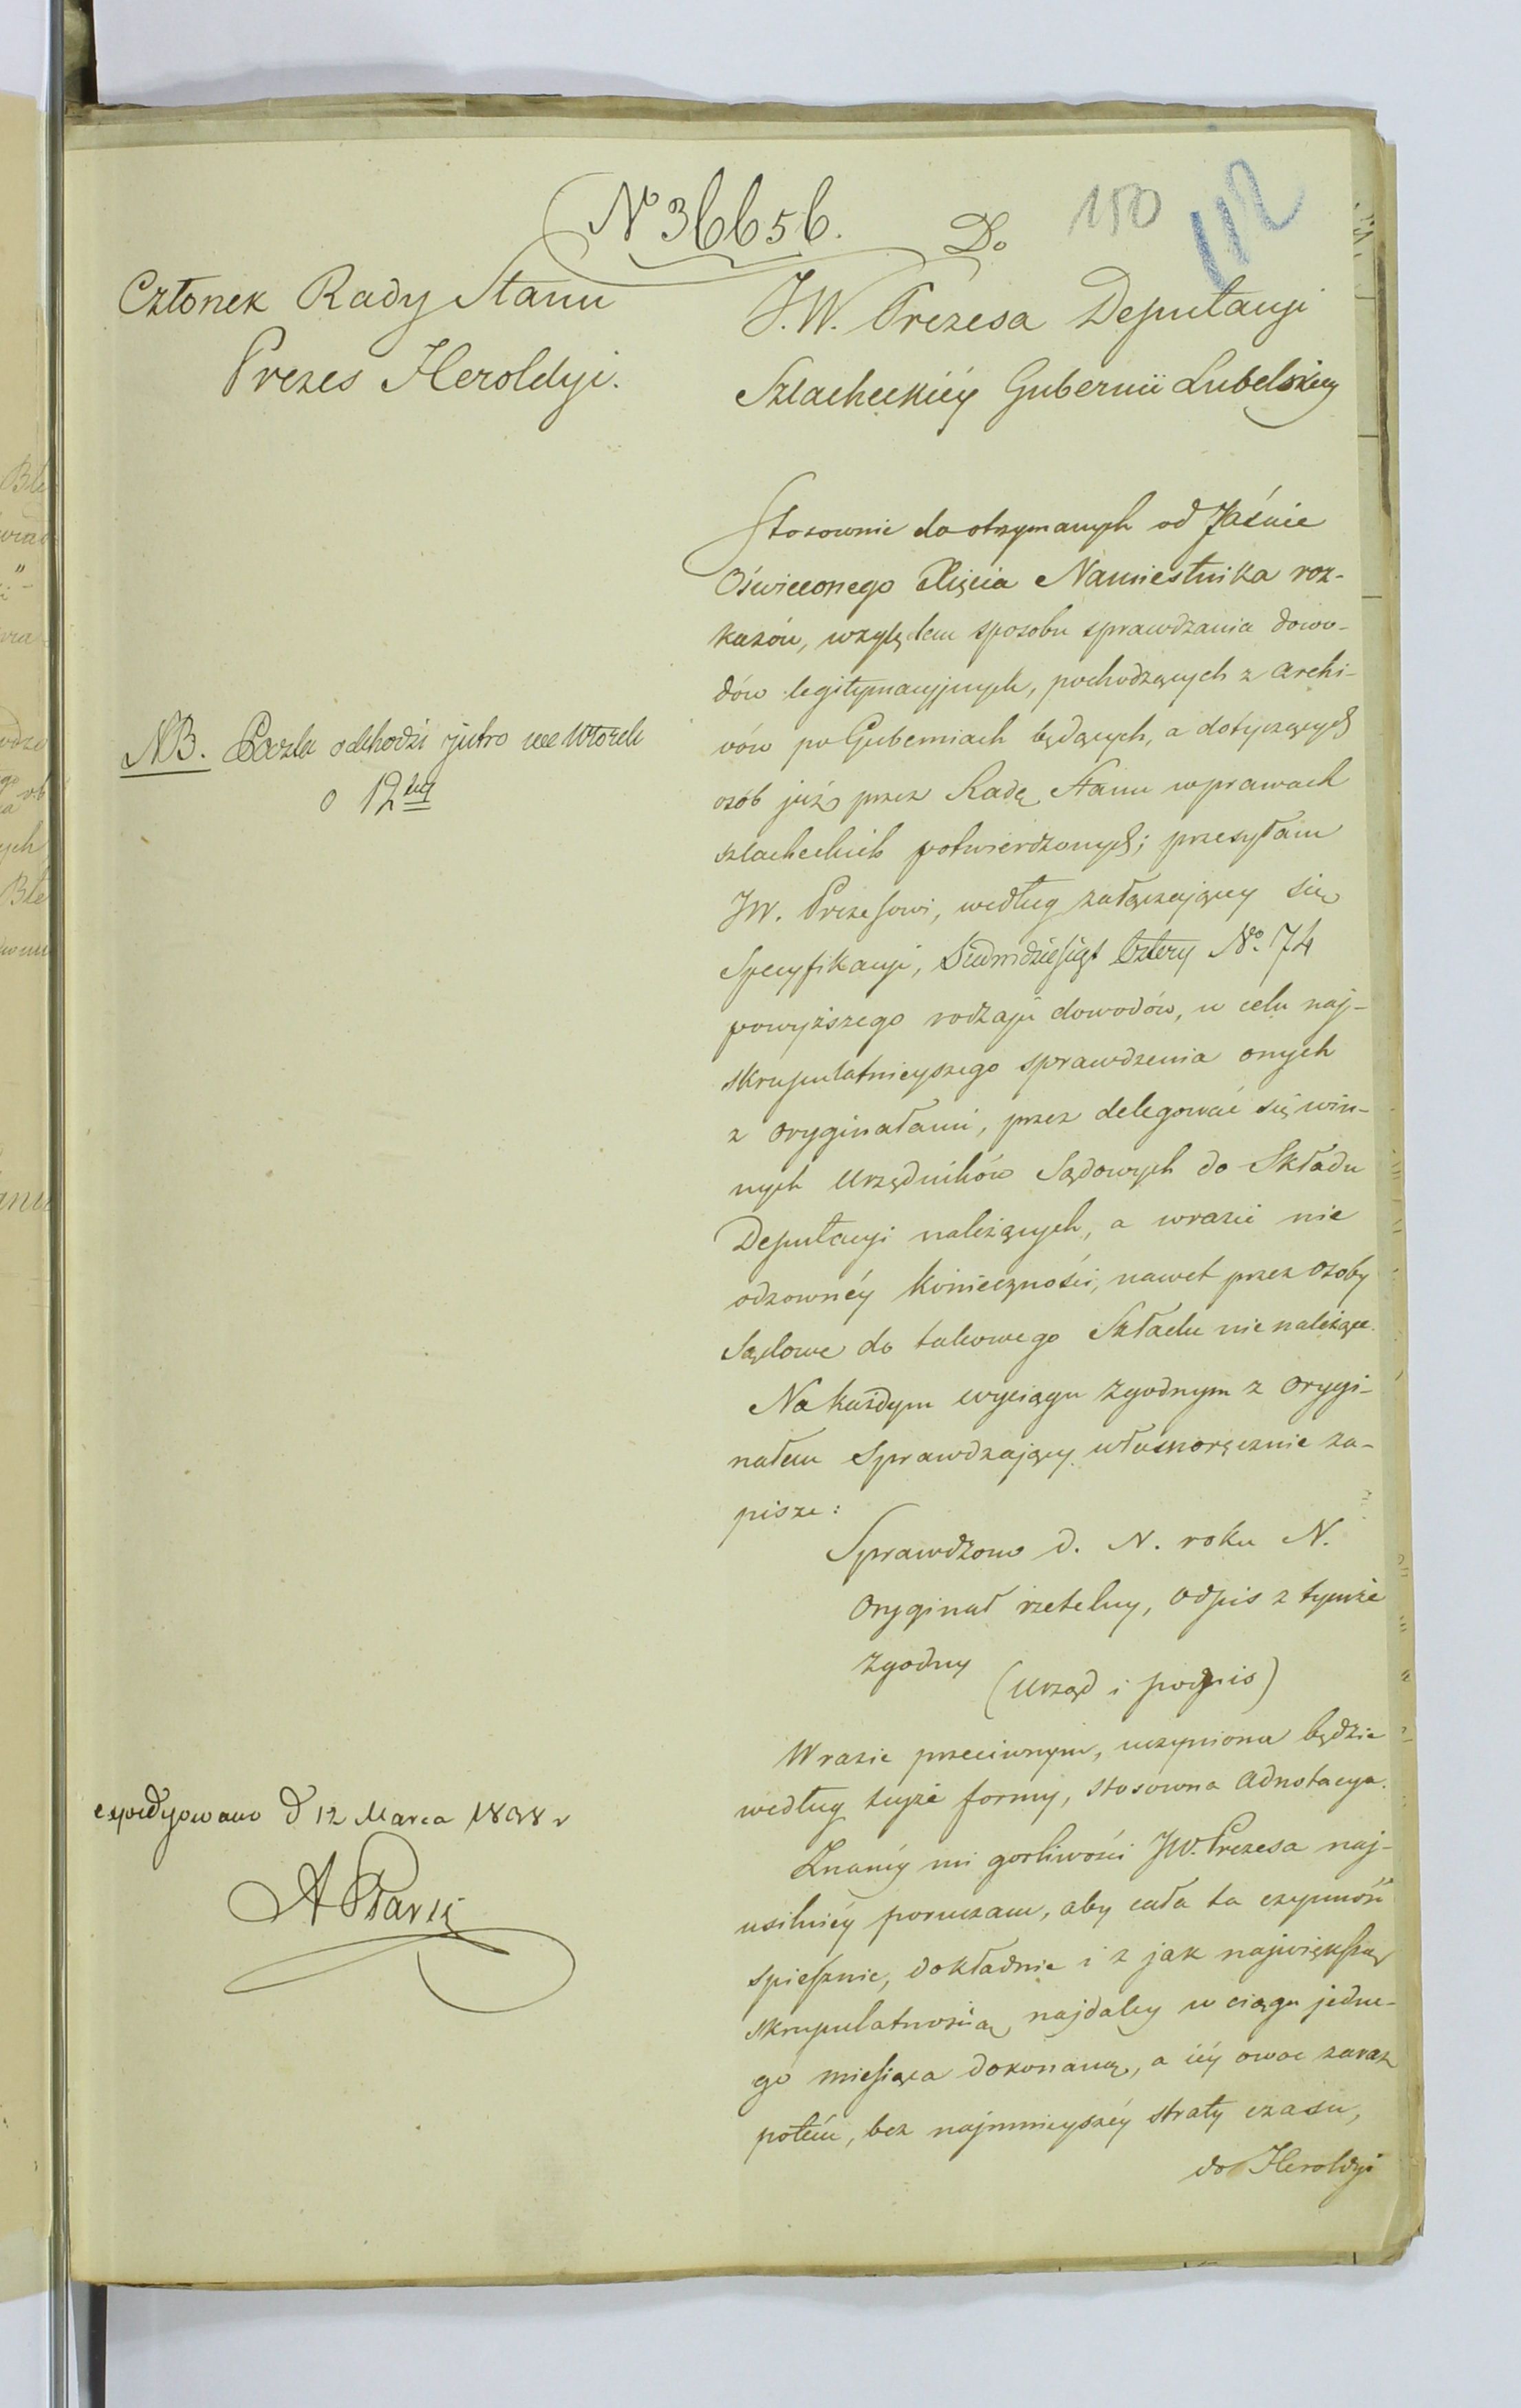 No 36656.
150
112
Członek Rady Stanu
Prezes Heroldyi.
Do
J.W. Prezesa Deputacyi
Szlacheckiéy Gubernii Lubelskiey
Stosownie do otrzymanych od Jaśnie
Oświeconego Xięcia Namiestnika roz-
kazów, względem sposobu sprawdzania dowo-
dów legitymacyjnych, pochodzących z archi-
vów po Guberniach będących, a dotyczących
osób już przez Radę Stanu w prawach
szlacheckich potwierdzonych; przesyłam
JW. Prezesowi, według załączającey się
Specyfikacyi, Siedmdziesiąt Cztery No. 74
powyższego rodzaju dowodów, w celu naj-
skrupulatnieyszego sprawdzenia onych
z oryginałami, przez delegować się win-
nych Urzędników Sądowych do Składu
Deputacyi należących, a w razie nie
odzownéy konieczności, nawet przez osoby
Sądowe do takowego Składu nie należące.
Na każdym wyciągu zgodnym z orygi-
nałem Sprawdzający własnoręcznie za-
pisze:
Sprawdzono d. N. roku N.
Oryginał rzetelny, odpis z tymże
zgodny
(Urząd i podpis)
W razie przeciwnym, uczyniona będzie
według teyże formy, stosowna adnotacya.
Znanéy mi gorliwości JW. Prezesa naj-
usilniéy poruczam, aby cała ta czynność
spiesznie, dokładnie i z jak największą
skrupulatnością, najdaley w ciągu jedne-
go miesiąca dokonaną, a iéy owoc zaraz
potém, bez najmnieyszéy straty czasu,
do Heroldyi
NB. Poczta odchodzi jutro we Wtorek
o 12tey
expedyowano d 12 Marca 1838 r